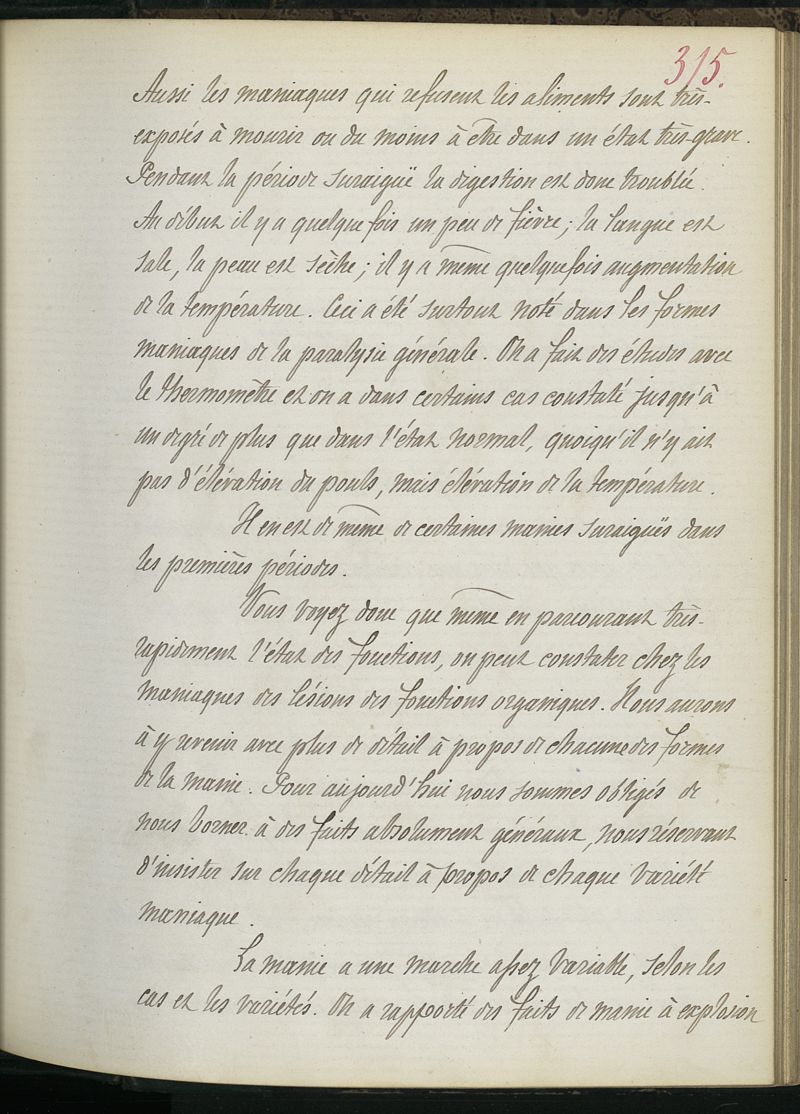 315.
Aussi les maniaques qui refusent les aliments sont très-
exposés à mourir ou du moins à être dans un état très-grave.
Pendant la période suraiguë la digestion est donc troublée.
Au début il y a quelquefois un peu de fièvre; la langue est
sale, la peau est sèche; il y a même quelquefois augmentation
de la température. Ceci a été surtout noté dans les formes
maniaques de la paralysie générale. On a fait des études avec
le thermomètre et on a dans certains cas constaté jusqu'à
un degré de plus que dans l'état normal, quoiqu'il n'y ait
pas d'élévation du pouls, mais élévation de la température.
Il en est de même de certaines manies suraiguës dans
les premières périodes.
Vous voyez donc que même en parcourant très-
rapidement l'état des fonctions, on peut constater chez les
maniaques des lésions des fonctions organiques. Nous aurons
à y revenir avec plus de détail à propos de chacune des formes
de la manie. Pour aujourd'hui nous sommes obligés de
nous borner à des faits absolument généraux, nous réservant
d'insister sur chaque détail à propos de chaque variété
maniaque.
La manie a une marche assez variable, selon les
cas et les variétés. On a rapporté des faits de manie à explosion